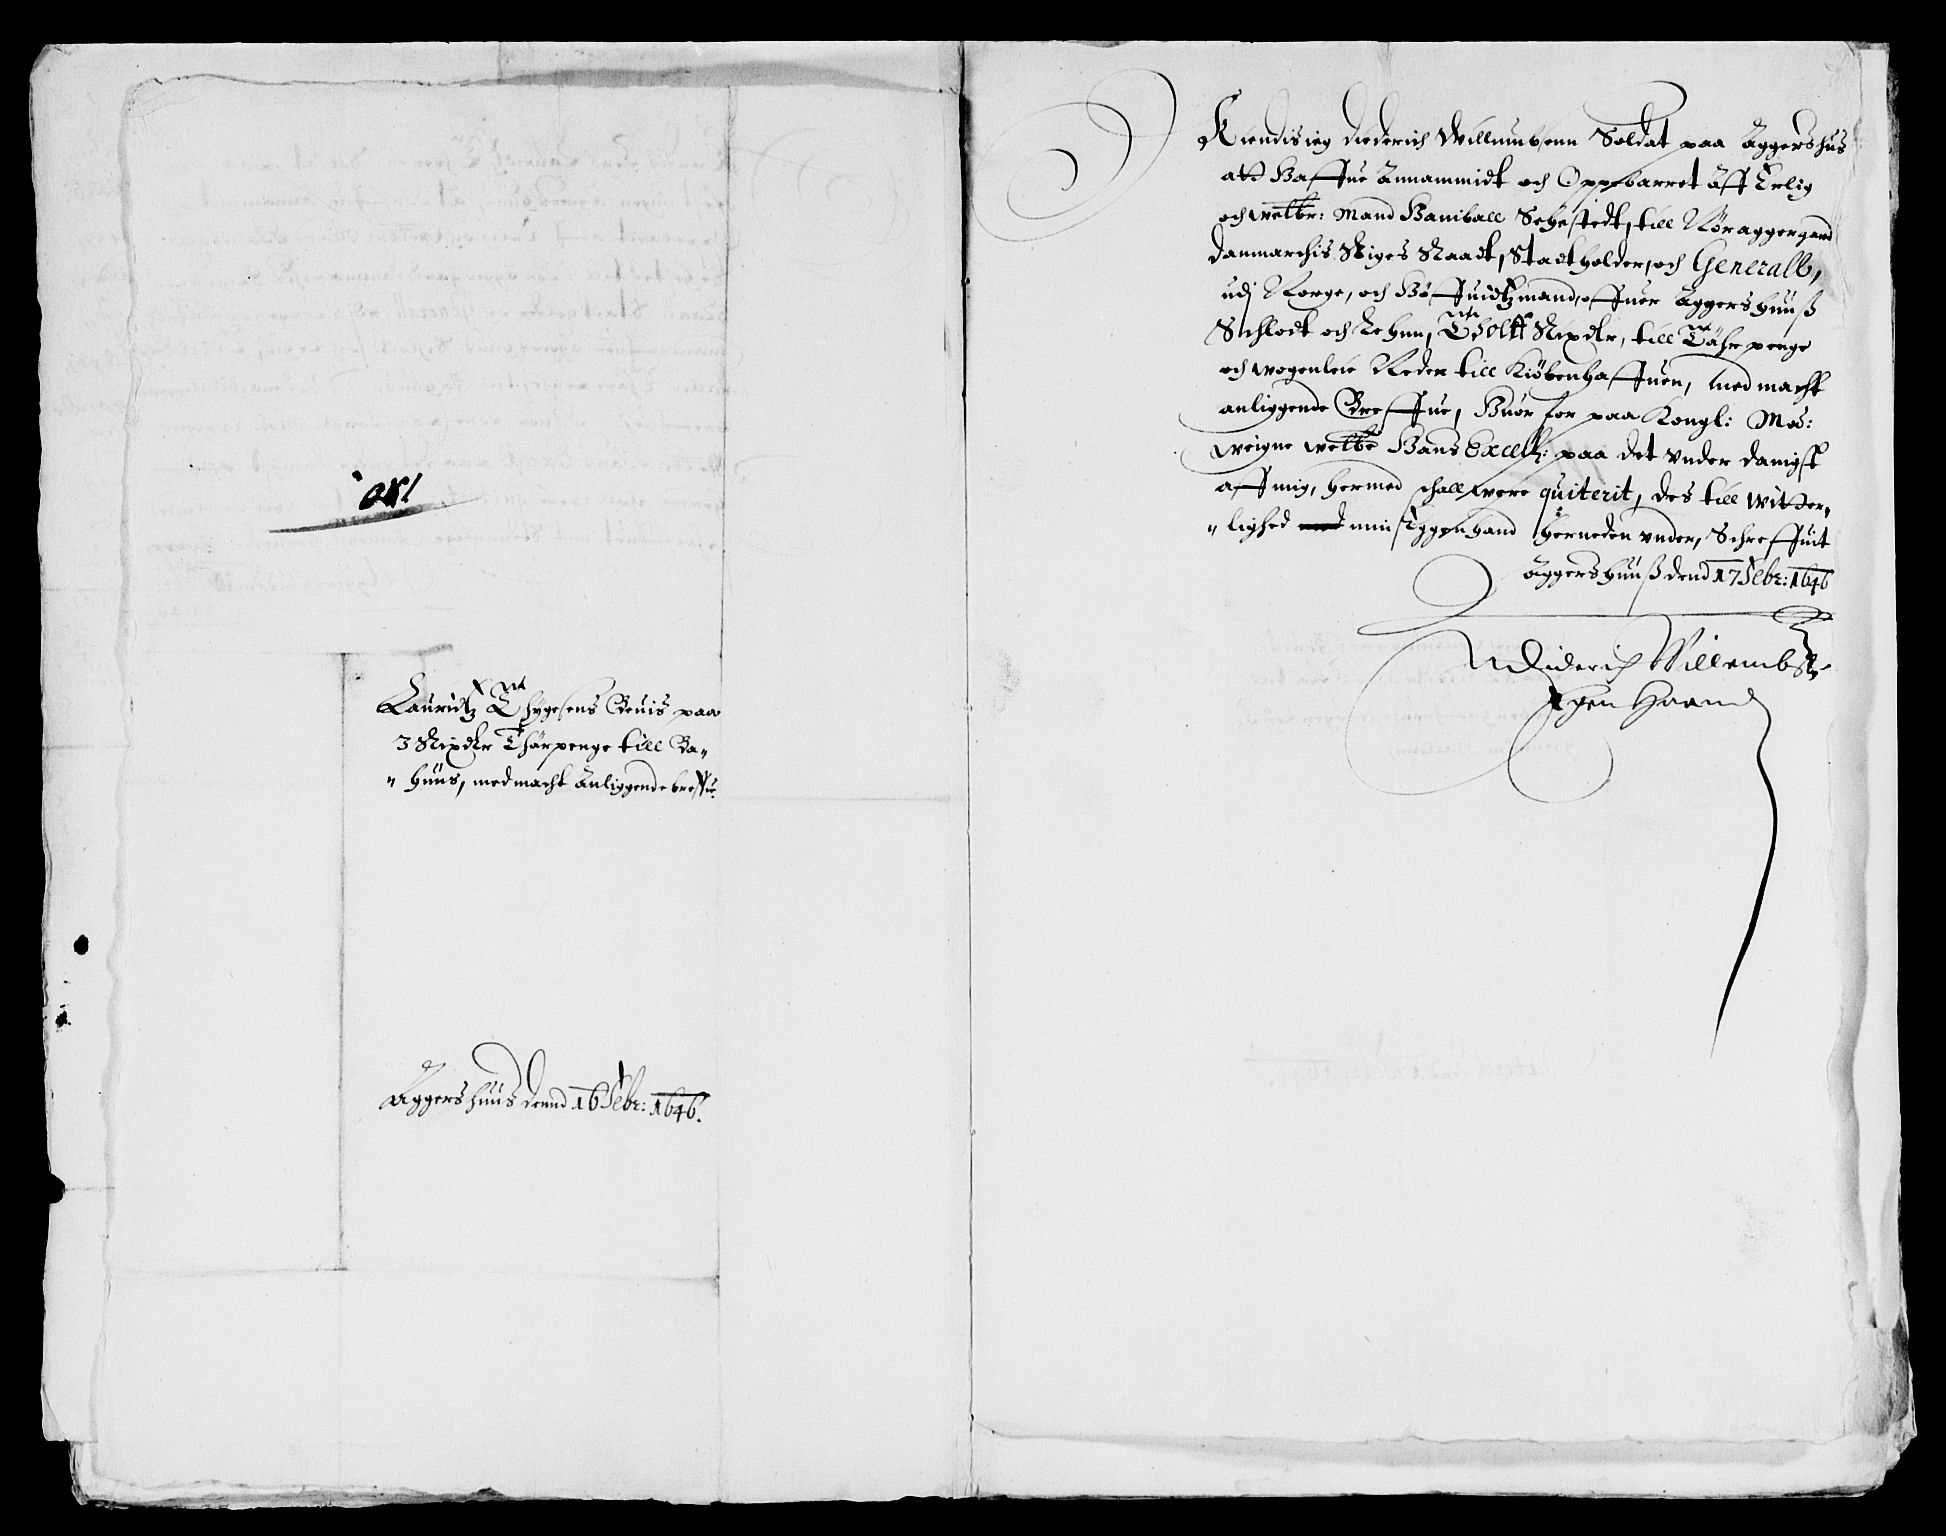 Lauridtz Thygesens Beuis paa
3 Rixdlr Thärpenge till Ba„
„ huus, med macht Anliggende breffue.
Aggershuus dennd 16 Febr: 1646.
Kiendis ieg Diederich Willumbsenn Soldat paa Aggershus
att Haffue Annammidt och Oppebarret äff Erlig
och welbr: Mand Haniball Sehestedt, till Nöraggergaard
danmarchis Riges Raadt, Stadtholder, och Generall,
udj Norge, och Höffuidtzmand, offuer Aggershuuß
Schlodt och Lehnn, Tholff Rixdlr, till Tähr penge
och wogenleie Neder till Kiöbenhaffuen, Med macht
anliggende Breffue, Huor for paa Kongl: May:
weigne welbe Hans Excell: paa det vnder danigst
aff mig, hermed schall were quiterit, des till witter„
„ lighed min Eggen hand herneden vnder, Schreffuit
Aggershuuß dend 17 Febr: 1646
Diderich Willembs
Egen Haand